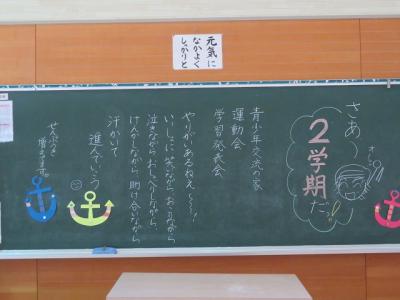 元気に
なかよく
しっかりと
さあ～
2学期だ
オー!
青少年交流の家
運動会
学習発表会
やりがいあるねえ～～～!
いっしょに笑いながら、おこりながら
泣きながら、おしゃべりしながら、
けんかしながら、助け合いながら
汗かいて
進んでいこう